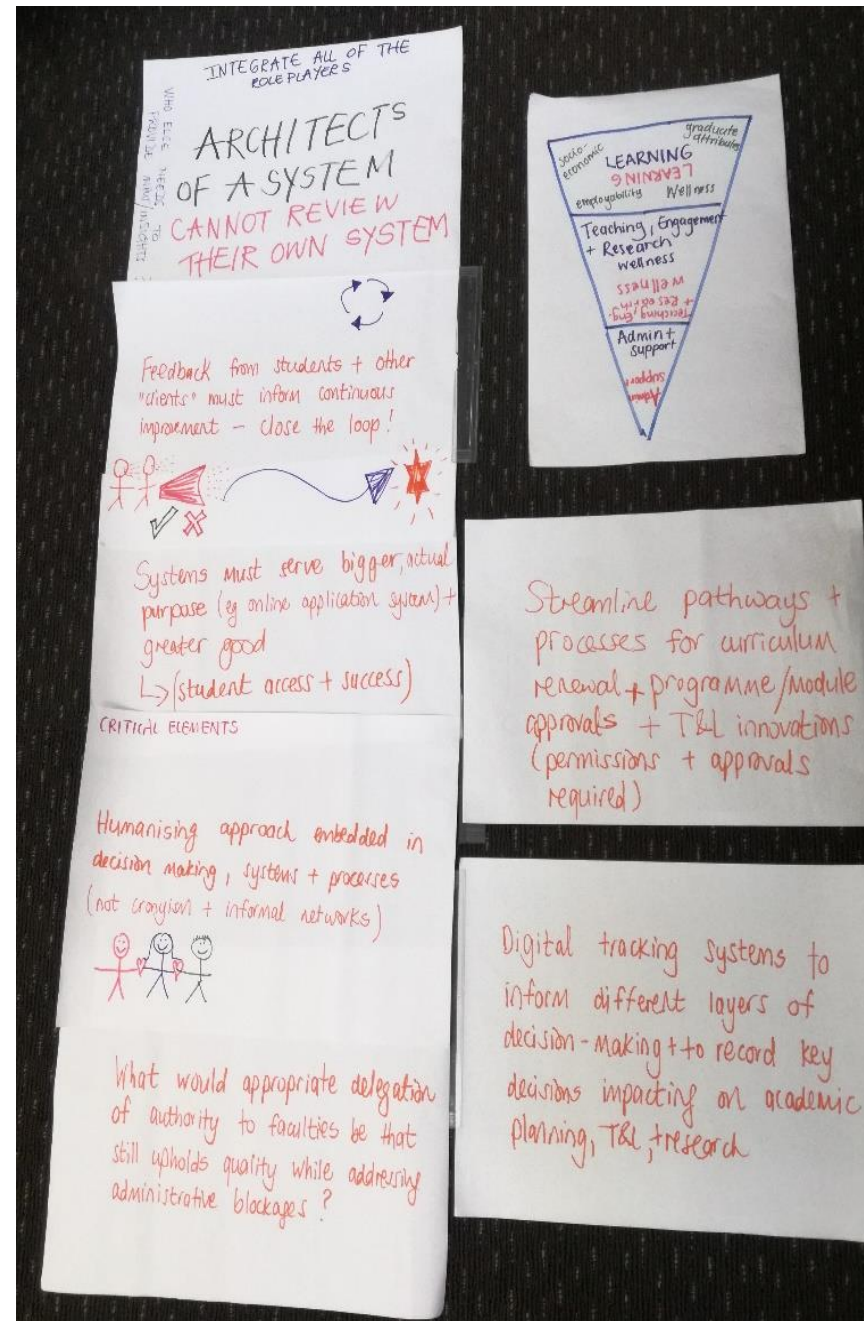 INTEGRATE ALL OF THE
ROLEPLAYERS
WHO ELSE NEEDS TO
PROVIDE INPUT/INSIGHTS
ARCHITECTS
OF A SYSTEM
CANNOT REVIEW
THEIR OWN SYSTEM
Feedback from students + other
"clients" must inform continuous
improvement – close the loop!
Systems must serve bigger, actual
purpose (eg online application system) +
greater good
↳ (student access + success)
CRITICAL ELEMENTS
Humanising approach embedded in
decision making, systems + processes
(not cronyism + informal networks)
What would appropriate delegation
of authority to faculties be that
still upholds quality while addressing
administrative blockages?
socio-
economic
graduate
attributes
LEARNING
LEARNING
employability
Wellness
Teaching, Engagement
+ Research
wellness
Teaching, Eng.
+ Research
wellness
Admin +
support
Admin
support
Streamline pathways +
processes for curriculum
renewal + programme/module
approvals + T&L innovations
(permissions + approvals
required)
Digital tracking systems to
inform different layers of
decision-making + to record key
decisions impacting on academic
planning, T&L, + research